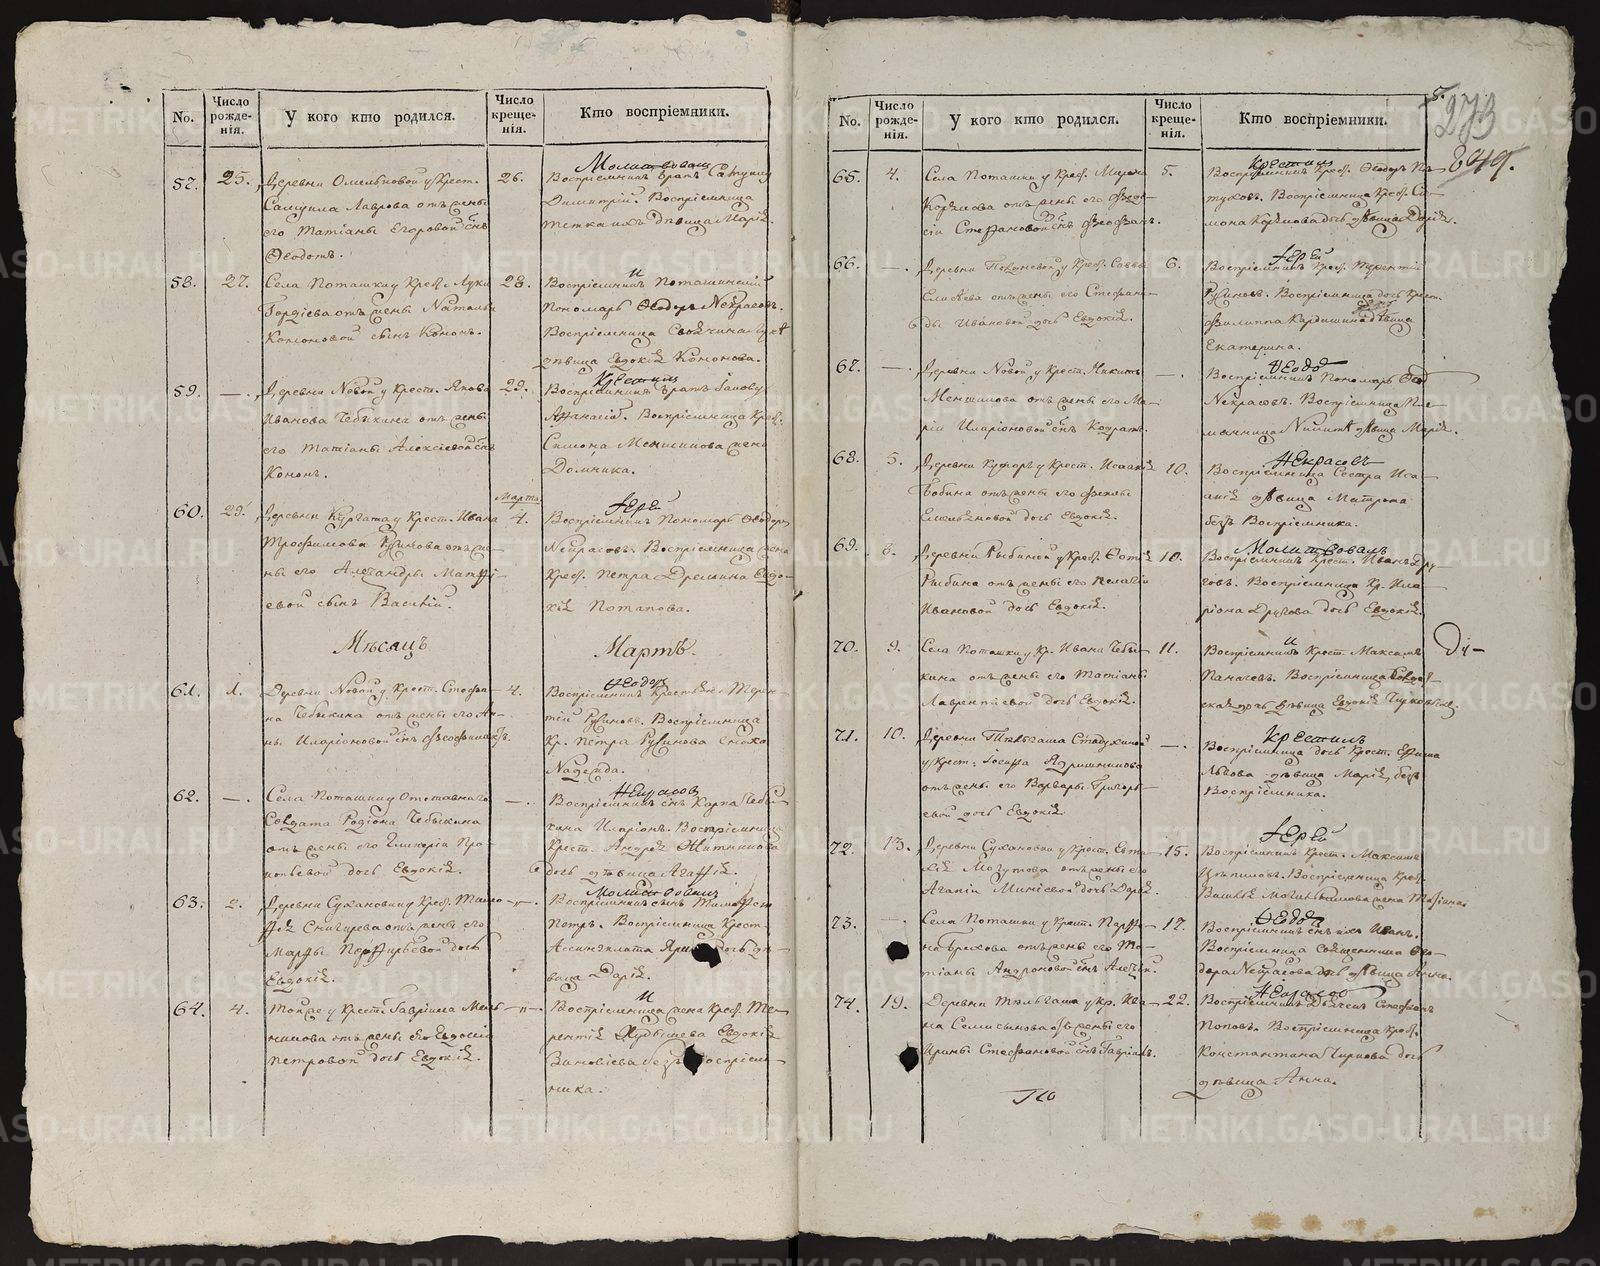 No.
Число рожде-нія.
У кого кто родился.
Число креще-нія.
Кто воспріемники.
57.
25.
Деревни Омельковой у Крест.
Самуила Лаврова отъ жены
его Татіаны Егоровой сынъ
Ѳедотъ.
26.
Молитвовалъ
Воспріемникъ братъ
Димитрій. Воспріемница
тетка ихъ дѣвица Марія.
58.
27.
Села Поташки у Крес. Луки
Гордіева отъ жены Натальи
Кононовой сынъ Кононъ.
28.
и
Воспріемникъ Поташинскій
пономарь Ѳеодоръ Некрасовъ.
Воспріемница
дѣвица Евдокія Кононова.
59.
—.
Деревни Новой у Крест. Якова
Иванова Чебыкина отъ жены
его Татіаны Алексіевой сынъ
Кононъ.
29.
Крестилъ
Воспріемникъ братъ
Афанасій. Воспріемница Крес.
Симона Меншикова жена
Домника.
60.
29.
Деревни Кургата у Крест. Ивана
Трофимова отъ же-
ны его Александры Матѳі-
евой сынъ Василій.
Марта
4.
Іерей
Воспріемникъ Пономарь Ѳеодоръ
Некрасовъ. Воспріемница жена
Крес. Петра Дремина Евдо-
кія Потапова.
Мѣсяцъ
Мартъ.
61.
1.
Деревни Новой у Крест. Стефа-
на Чебыкина отъ жены его Ан-
ны Иларіоновой сынъ Ѳеофилактъ.
4.
Ѳеодоръ
Воспріемникъ Терен-
тій Рувиновъ. Воспріемница
Кр. Петра Рувинова сноха
Надежда.
62.
—.
Села Поташки у Отставнаго
Солдата Родіона Чебыкина
отъ жены его Гликеріи Про-
копьевой дочь Евдокія.
—.
Некрасовъ
Воспріемникъ сынъ Карпа Чебы-
кина Иларіонъ. Воспріемница
Крест. Андрея Житникова
дочь дѣвица Агафія.
63.
2.
Деревни Сухановки у Крес. Тимо-
фѣя Снигирева отъ жены его
Марфы Порфирьевой дочь
Евдокія.
—„—.
Молитвовалъ
Воспріемникъ сынъ Тимофея
Петръ. Воспріемница Крест.
дочь дѣ-
вица Дарія.
64.
4.
Той же у Крест. Гавріила Мень-
шикова отъ жены его Евдокіи
Петровой дочь Евдокія.
—„—.
и
Воспріемница жена Крес. Те-
рентія Евдокія
Зиновіева безъ воспріем-
ника.
5.
273
849.
No.
Число рожде-нія.
У кого кто родился.
Число креще-нія.
Кто воспріемники.
65.
4.
Села Поташки у Крес. Мирона
отъ жены его Ѳеодо-
сіи Стефановой сынъ Ѳеофанъ.
5.
Крестилъ
Воспріемникъ Крес. Ѳеодоръ Пе-
туховъ. Воспріемница Крес. Си-
мона дочь дѣвица Дарія.
66.
—.
Деревни у Крес. Саввы
Елисѣева отъ жены его Стефани-
ды Ивановой дочь Евдокія.
6.
Іерей
Воспріемникъ Крес. Терентій
Рувиновъ. Воспріемница дочь Крест.
Филиппа дѣвица
Екатерина.
67.
—.
Деревни Новой у Крест. Никиты
Меншикова отъ жены его Ма-
ріи Иларіоновой сынъ Кодратъ.
—.
Ѳеодо
Воспріемникъ Пономарь Ѳеод
Некрасовъ. Воспріемница Пле-
мянница Никиты дѣвица Марія.
68.
5.
Деревни у Крест. Исаакія
Бобина отъ жены его Ѳеклы
Емельяновой дочь Евдокія.
10.
Некрасовъ
Воспріемница Сестра Иса-
акія дѣвица Матрона
безъ Воспріемника.
69.
8.
Деревни Рыбиной у Крес. Фотія
Рыбина отъ жены его Пелагіи
Ивановой дочь Евдокія.
10.
Молитвовалъ
Воспріемникъ Крест. Иванъ Дру-
говъ. Воспріемница Кр. Ила-
ріона Другова дочь Евдокія.
70.
9.
Села Поташки у Кр. Ивана Чебы-
кина отъ жены его Татіаны
Лаврентіевой дочь Евдокія.
11.
и
Воспріемникъ Крест. Максимъ
Пиначевъ. Воспріемница Солдат-
ская дочь дѣвица Евдокія
Ди-
71.
10.
Деревни Тяльгаша Стадухиной
у Крест. Іосифа
отъ жены его Варвары Григорь-
евой дочь Евдокія.
—.
Крестилъ
Воспріемница дочь Крест. Ефима
Львова дѣвица Марія, безъ
Воспріемника.
72.
13.
Деревни Сухановки у Крест.
Могутова отъ жены его
Агапіи Минѣевой дочь Дарія.
15.
Іерей
Воспріемникъ Крест. Максимъ
Цѣпиловъ. Воспріемница Крес.
жена Татіана.
73.
—.
Села Поташки у Крест. Парфе-
на Брюхова отъ жены его Та-
тіаны Андроновой сынъ Алексѣй.
17.
Ѳеодо
Воспріемникъ сынъ ихъ Иванъ.
Воспріемница Священника Ѳео-
дора Некрасова дочь дѣвица Анна.
74.
19.
Деревни Тяльгаша у Кр. Ива-
на Селисынова отъ жены его
Ирины Стефановой сынъ Гавріилъ.
22.
Некрасовъ
Воспріемникъ Дьячекъ Стефанъ
Поповъ. Воспріемница Крес.
Константина Чиркова дочь
дѣвица Анна.